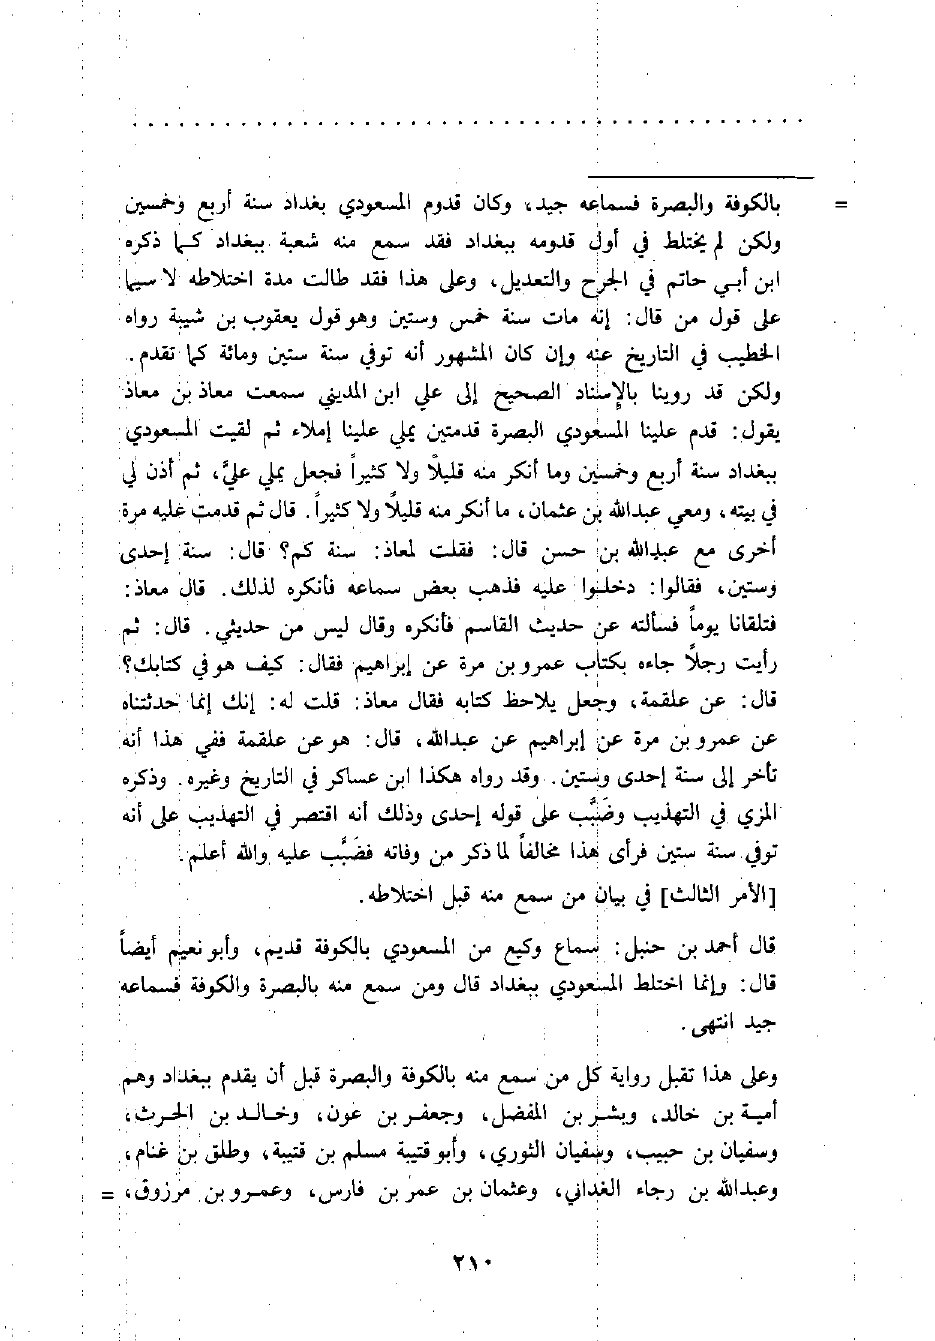 . . . . . . . . . . . . . . . . . . . . . . . . . . . . . . . . . . . . . . . . . . . .
= بالكوفة والبصرة فسماعه جيد، وكان قدوم المسعودي بغداد سنة أربع وخمسين
ولكن لم يختلط في أول قدومه ببغداد فقد سمع منه شعبة ببغداد كما ذكره
ابن أبي حاتم في الجرح والتعديل، وعلى هذا فقد طالت مدة اختلاطه لا سيما
على قول من قال: إنه مات سنة خمس وستين وهو قول يعقوب بن شيبة رواه
الخطيب في التاريخ عنه وإن كان المشهور أنه توفي سنة ستين ومائة كما تقدم.
ولكن قد روينا بالإسناد الصحيح إلى علي ابن المديني سمعت معاذ بن معاذ
يقول: قدم علينا المسعودي البصرة قدمتين يملي علينا إملاء ثم لقيت المسعودي
ببغداد سنة أربع وخمسين وما أنكر منه قليلاً ولا كثيراً فجعل يملي عليَّ، ثم أذن لي
في بيته، ومعي عبدالله بن عثمان، ما أنكر منه قليلاً ولا كثيراً. قال ثم قدمت عليه مرة
أخرى مع عبدالله بن حسن قال: فقلت لمعاذ: سنة كم؟ قال: سنة إحدى
وستين، فقالوا: دخلوا عليه فذهب بعض سماعه فأنكره لذلك. قال معاذ:
فتلقانا يوماً فسألته عن حديث القاسم فأنكره وقال ليس من حديثي. قال: ثم
رأيت رجلاً جاءه بكتاب عمرو بن مرة عن إبراهيم فقال: كيف هو في كتابك؟
قال: عن علقمة، وجعل يلاحظ كتابه فقال معاذ: قلت له: إنك إنما حدثتناه
عن عمرو بن مرة عن إبراهيم عن عبدالله، قال: هو عن علقمة ففي هذا أنه
تأخر إلى سنة إحدى وستين. وقد رواه هكذا ابن عساكر في التاريخ وغيره. وذكره
المزي في التهذيب وضَبَّب على قوله إحدى وذلك أنه اقتصر في التهذيب على أنه
توفي سنة ستين فرأى هذا مخالفاً لما ذكر من وفاته فضَبَّب عليه والله أعلم.
[الأمر الثالث] في بيان من سمع منه قبل اختلاطه.
قال أحمد بن حنبل: سماع وكيع من المسعودي بالكوفة قديم، وأبو نعيم أيضاً
قال: وإنما اختلط المسعودي ببغداد قال ومن سمع منه بالبصرة والكوفة فسماعه
جيد انتهى.
وعلى هذا تقبل رواية كل من سمع منه بالكوفة والبصرة قبل أن يقدم ببغداد وهم
أمية بن خالد، وبشر بن المفضل، وجعفر بن عون، وخالد بن الحرث،
وسفيان بن حبيب، وسفيان الثوري، وأبو قتيبة مسلم بن قتيبة، وطلق بن غنام،
وعبدالله بن رجاء الغداني، وعثمان بن عمر بن فارس، وعمرو بن مرزوق، =
٢١٠